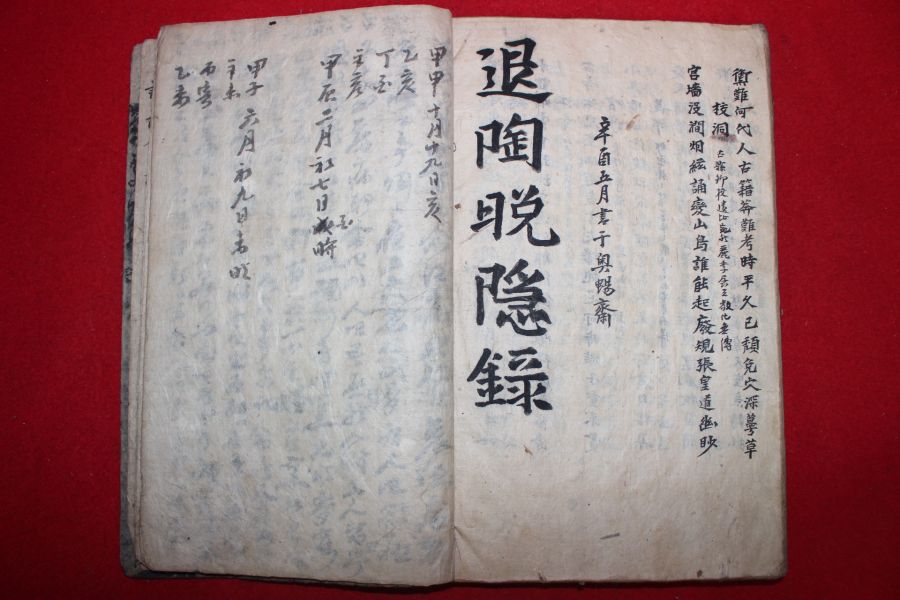 何代人古籍莽難考時平久已頹兔穴深蔓草
校洞
宮墻沒澗烟絃誦變山鳥誰能起廢規張皇道幽眇
辛酉五月書于奧蜴齋
退陶晩隠錄
甲申十月十九日亥
乙亥
甲辰二月初七日戌時
甲子六月初九日未時
辛未
丙寅
乙未